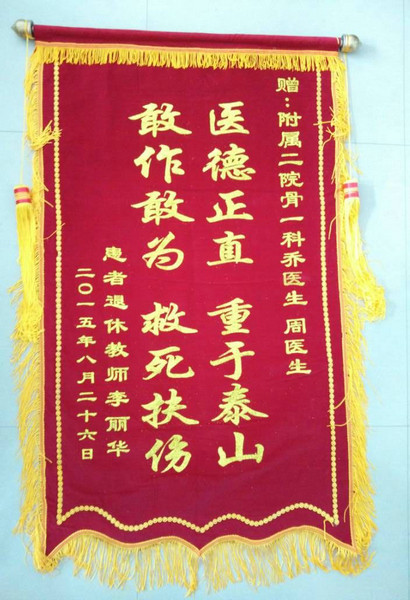 赠：附属二院骨一科乔医生 周医生
医德正直 重于泰山
敢作敢为 救死扶伤
患者退休教师李丽华
二〇一五年八月二十六日